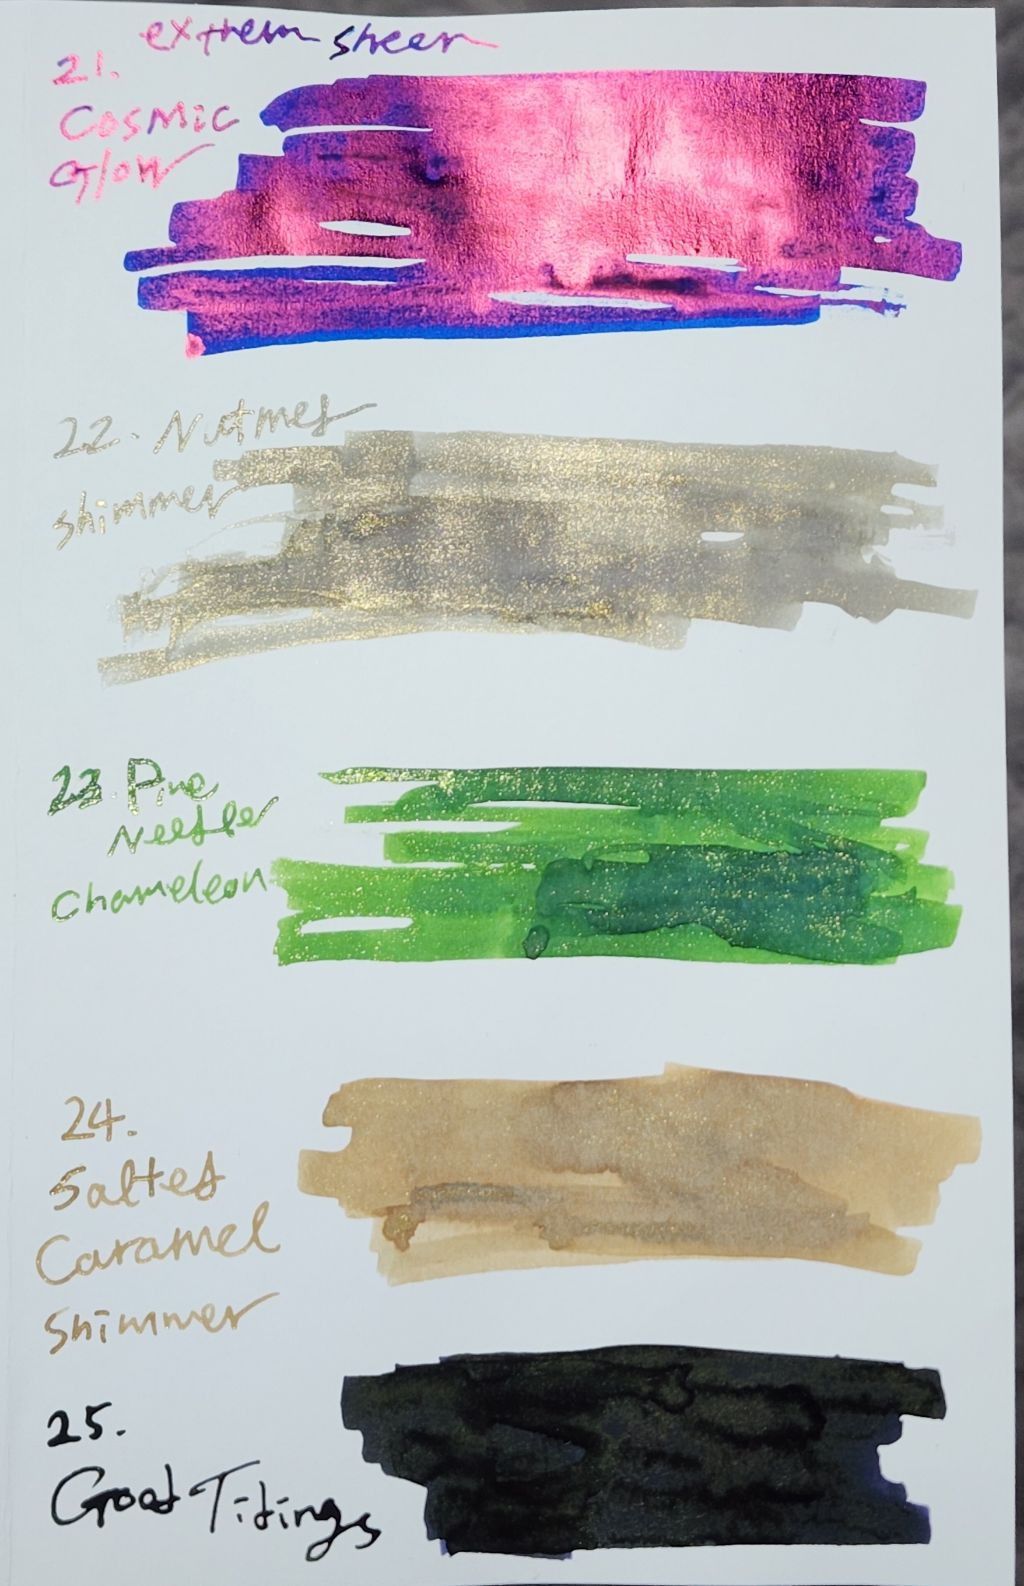 extrem sheen
21.
Cosmic
Glow
22. Nutmeg
shimmer
23. Pine
Needle
Chameleon
24.
Salted
Caramel
Shimmer
25.
Good Tidings